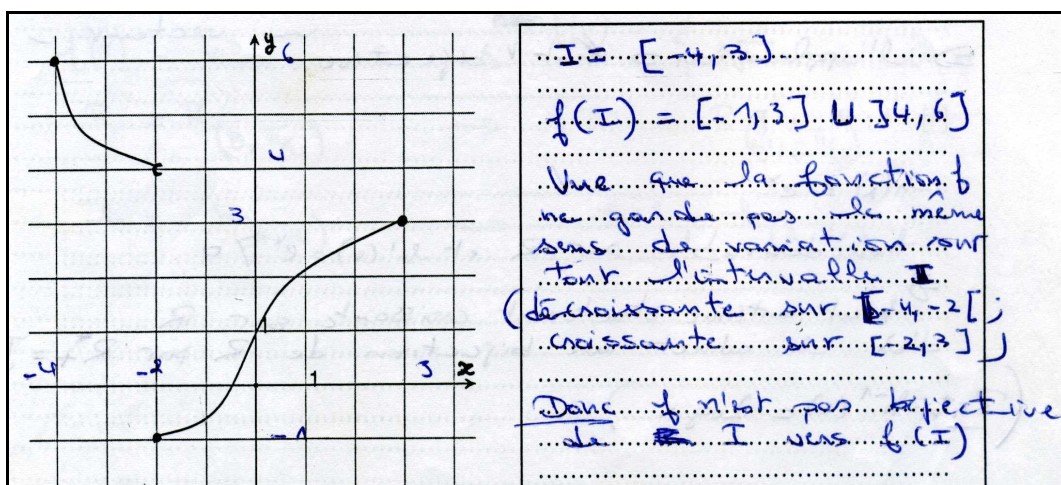 y
6
4
3
-4
-2
1
3
x
-1
I = [-4, 3]
f(I) = [-1, 3] ∪ ]4, 6]
Vue que la fonction f
ne garde pas le même
sens de variation sur
tout l'intervalle I
(décroissante sur [-4, -2[ ;
croissante sur [-2, 3] )
Donc f n'est pas bijective
de I vers f(I)